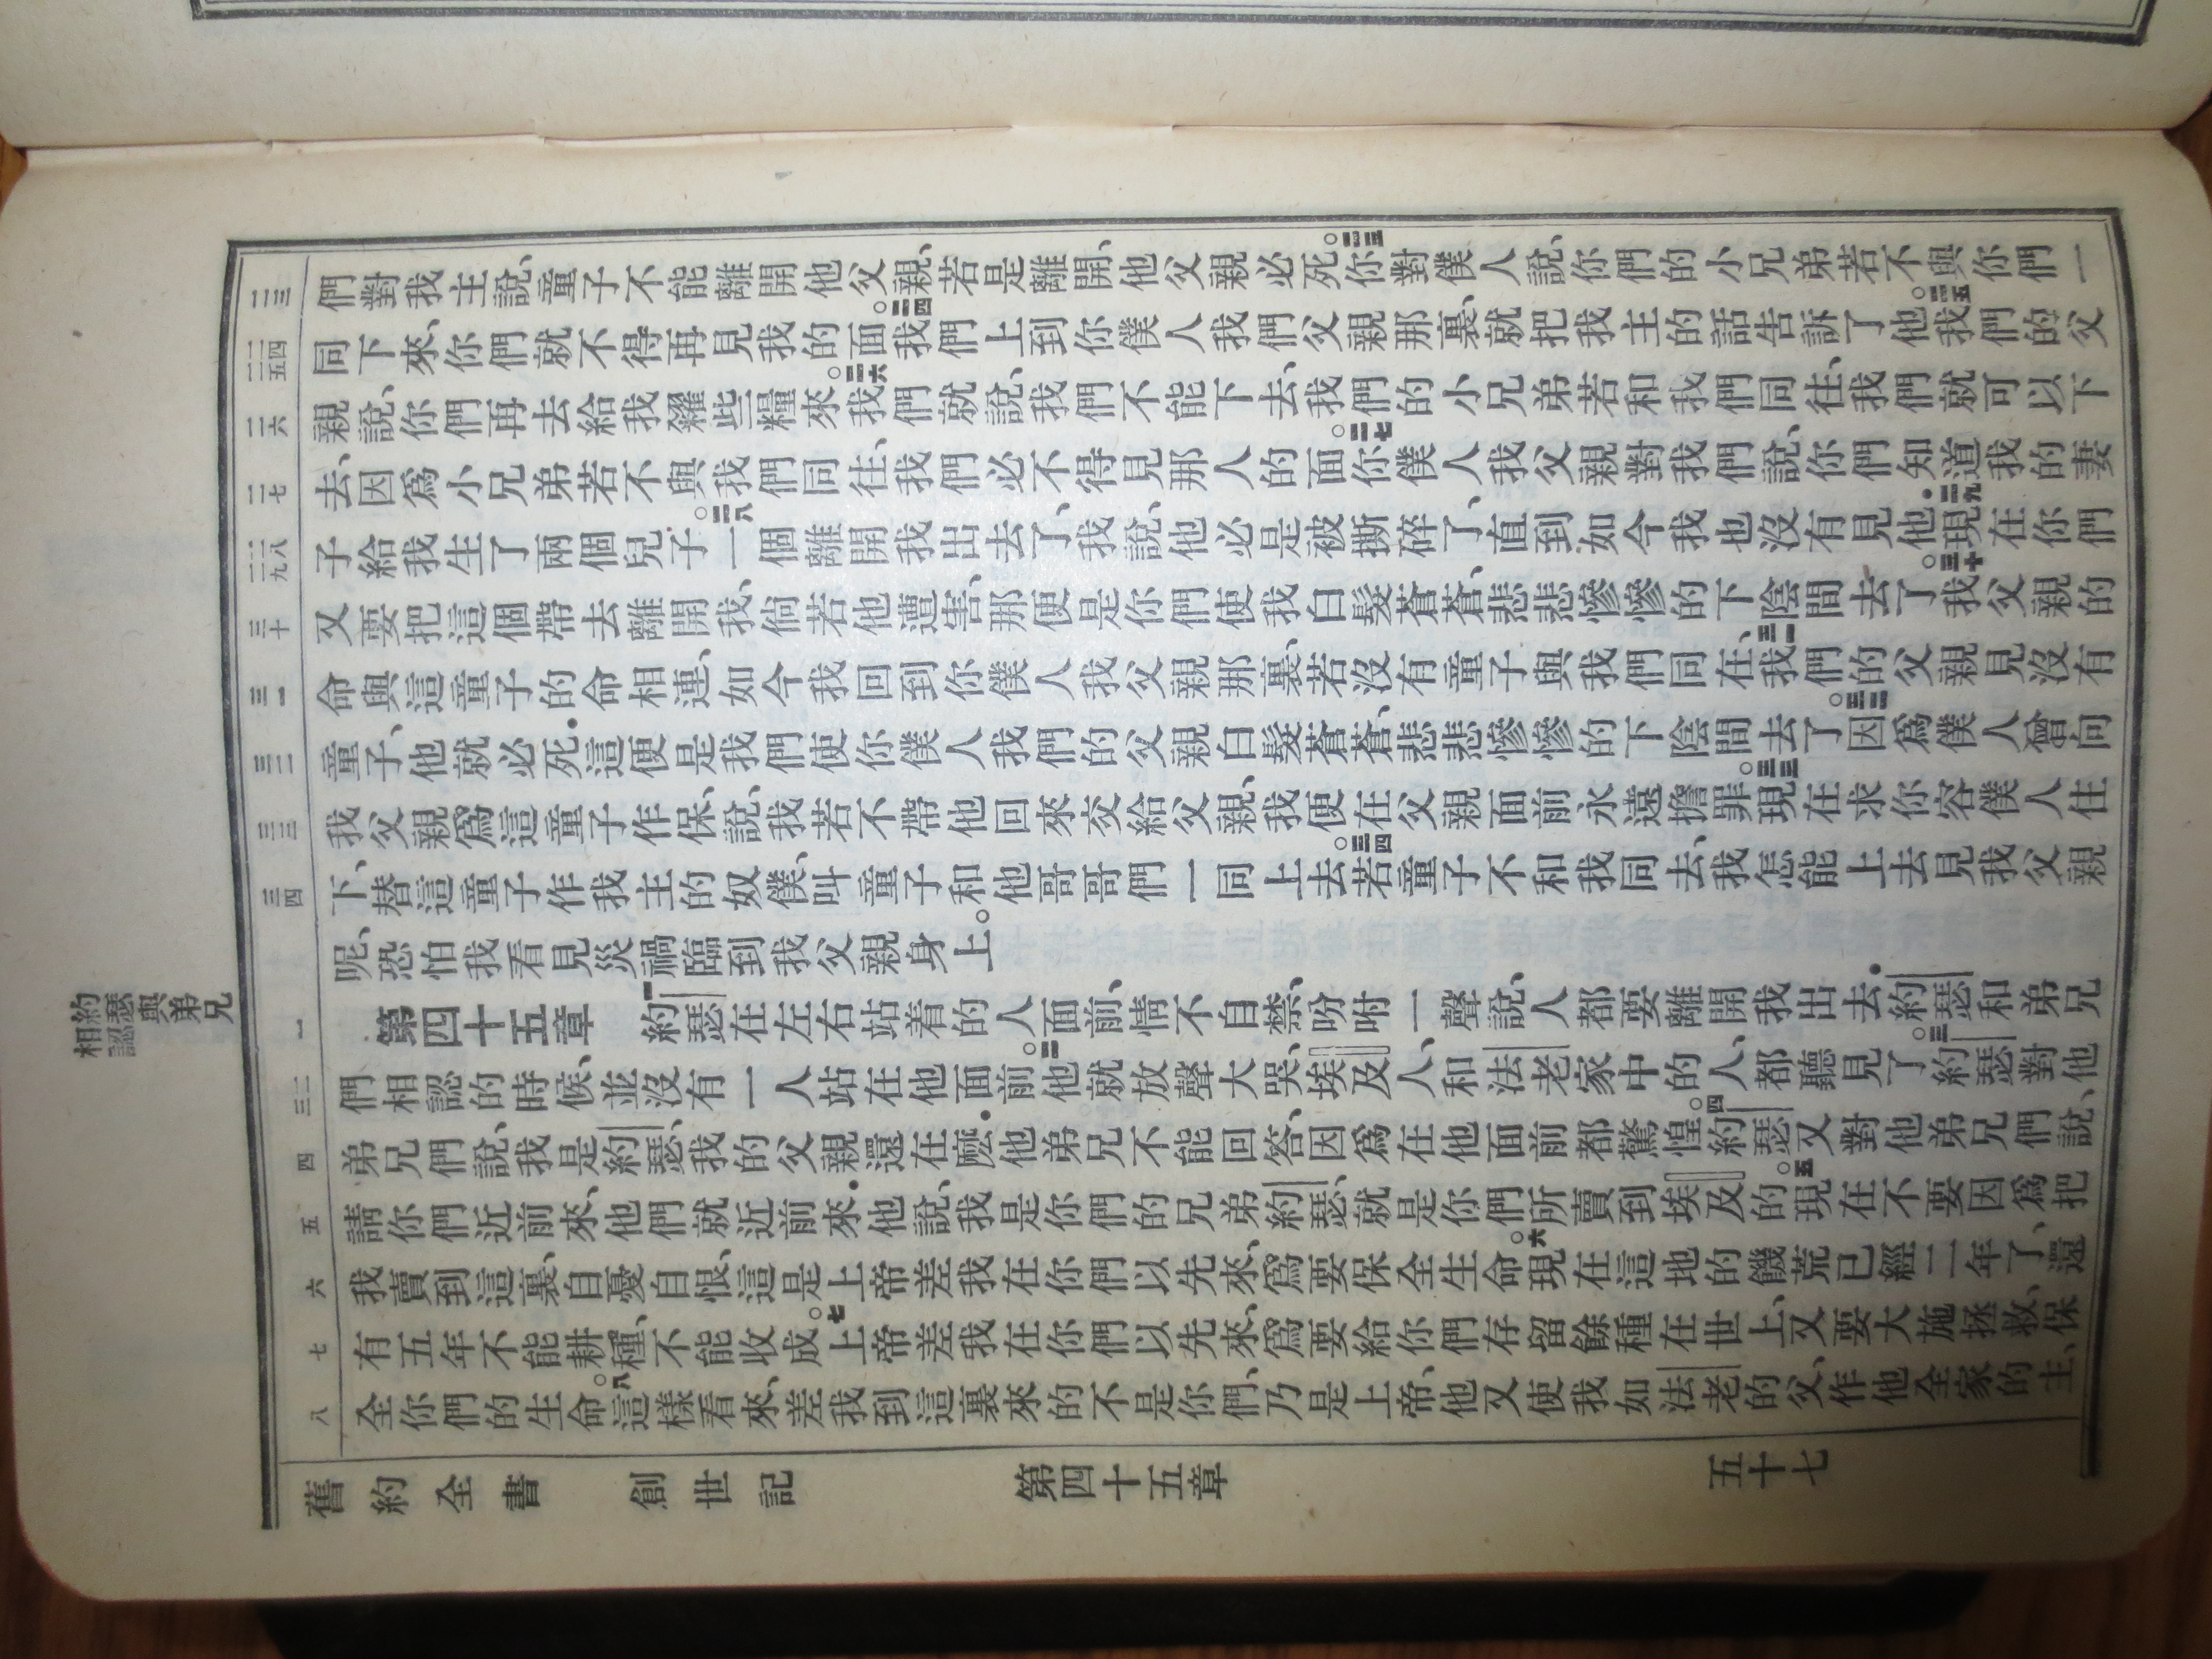 們對我主說、童子不能離開他父親、若是離開、他父親必死。二三你對僕人說、你們的小兄弟若不與你們一
同下來、你們就不得再見我的面。二四我們上到你僕人我們父親那裏、就把我主的話告訴了他。二五我們的父
親說、你們再去給我糴些糧來。二六我們就說、我們不能下去、我們的小兄弟若和我們同往、我們就可以下
去、因爲小兄弟若不與我們同往、我們必不得見那人的面。二七你僕人我父親對我們說、你們知道我的妻
子給我生了兩個兒子。二八一個離開我出去了、我說、他必是被撕碎了、直到如今我也沒有見他．二九現在你們
又要把這個帶去離開我、倘若他遭害、那便是你們使我白髮蒼蒼、悲悲慘慘的下陰間去了。三十我父親的
命與這童子的命相連、如今我回到你僕人我父親那裏、若沒有童子與我們同在、三一我們的父親見沒有
童子、他就必死．這便是我們使你僕人我們的父親白髮蒼蒼、悲悲慘慘的下陰間去了。三二因爲僕人曾向
我父親爲這童子作保、說、我若不帶他回來交給父親、我便在父親面前永遠擔罪。三三現在求你容僕人住
下、替這童子作我主的奴僕、叫童子和他哥哥們一同上去。三四若童子不和我同去、我怎能上去見我父親
呢、恐怕我看見災禍臨到我父親身上。
第四十五章　一約瑟在左右站着的人面前、情不自禁、吩咐一聲說、人都要離開我出去．約瑟和弟兄
們相認的時候、並沒有一人站在他面前。二他就放聲大哭、埃及人、和法老家中的人、都聽見了。三約瑟對他
弟兄們說、我是約瑟、我的父親還在麽．他弟兄不能回答、因爲在他面前都驚惶。四約瑟又對他弟兄們說、
請你們近前來、他們就近前來．他說、我是你們的兄弟約瑟、就是你們所賣到埃及的。五現在不要因爲把
我賣到這裏、自憂自恨、這是上帝差我在你們以先來、爲要保全生命。六現在這地的饑荒已經二年了、還
有五年不能耕種、不能收成。七上帝差我在你們以先來、爲要給你們存留餘種在世上、又要大施拯救、保
全你們的生命。八這樣看來、差我到這裏來的不是你們、乃是上帝、他又使我如法老的父、作他全家的主、
二三
二四
二五
二六
二七
二八
二九
三十
三一
三二
三三
三四
一
二
三
四
五
六
七
八
約瑟與弟兄
相認
舊約全書　創世記　第四十五章　五十七